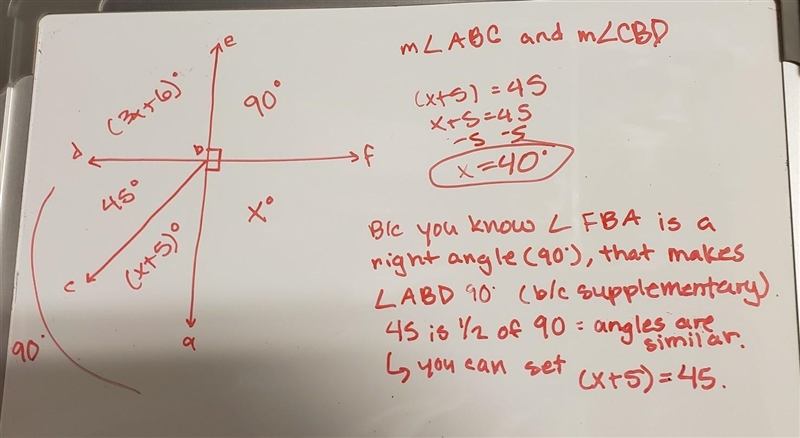 e
(3x+6)°
90°
d
b
f
45°
x°
(x+5)°
c
a
90°
m∠ABC and m∠CBD
(x+5) = 45
x+5=45
-5 -5
x=40°
B/c you know ∠ FBA is a
right angle (90°), that makes
∠ABD 90° (b/c supplementary)
45 is 1/2 of 90 = angles are
similar.
↳ you can set (x+5)=45.